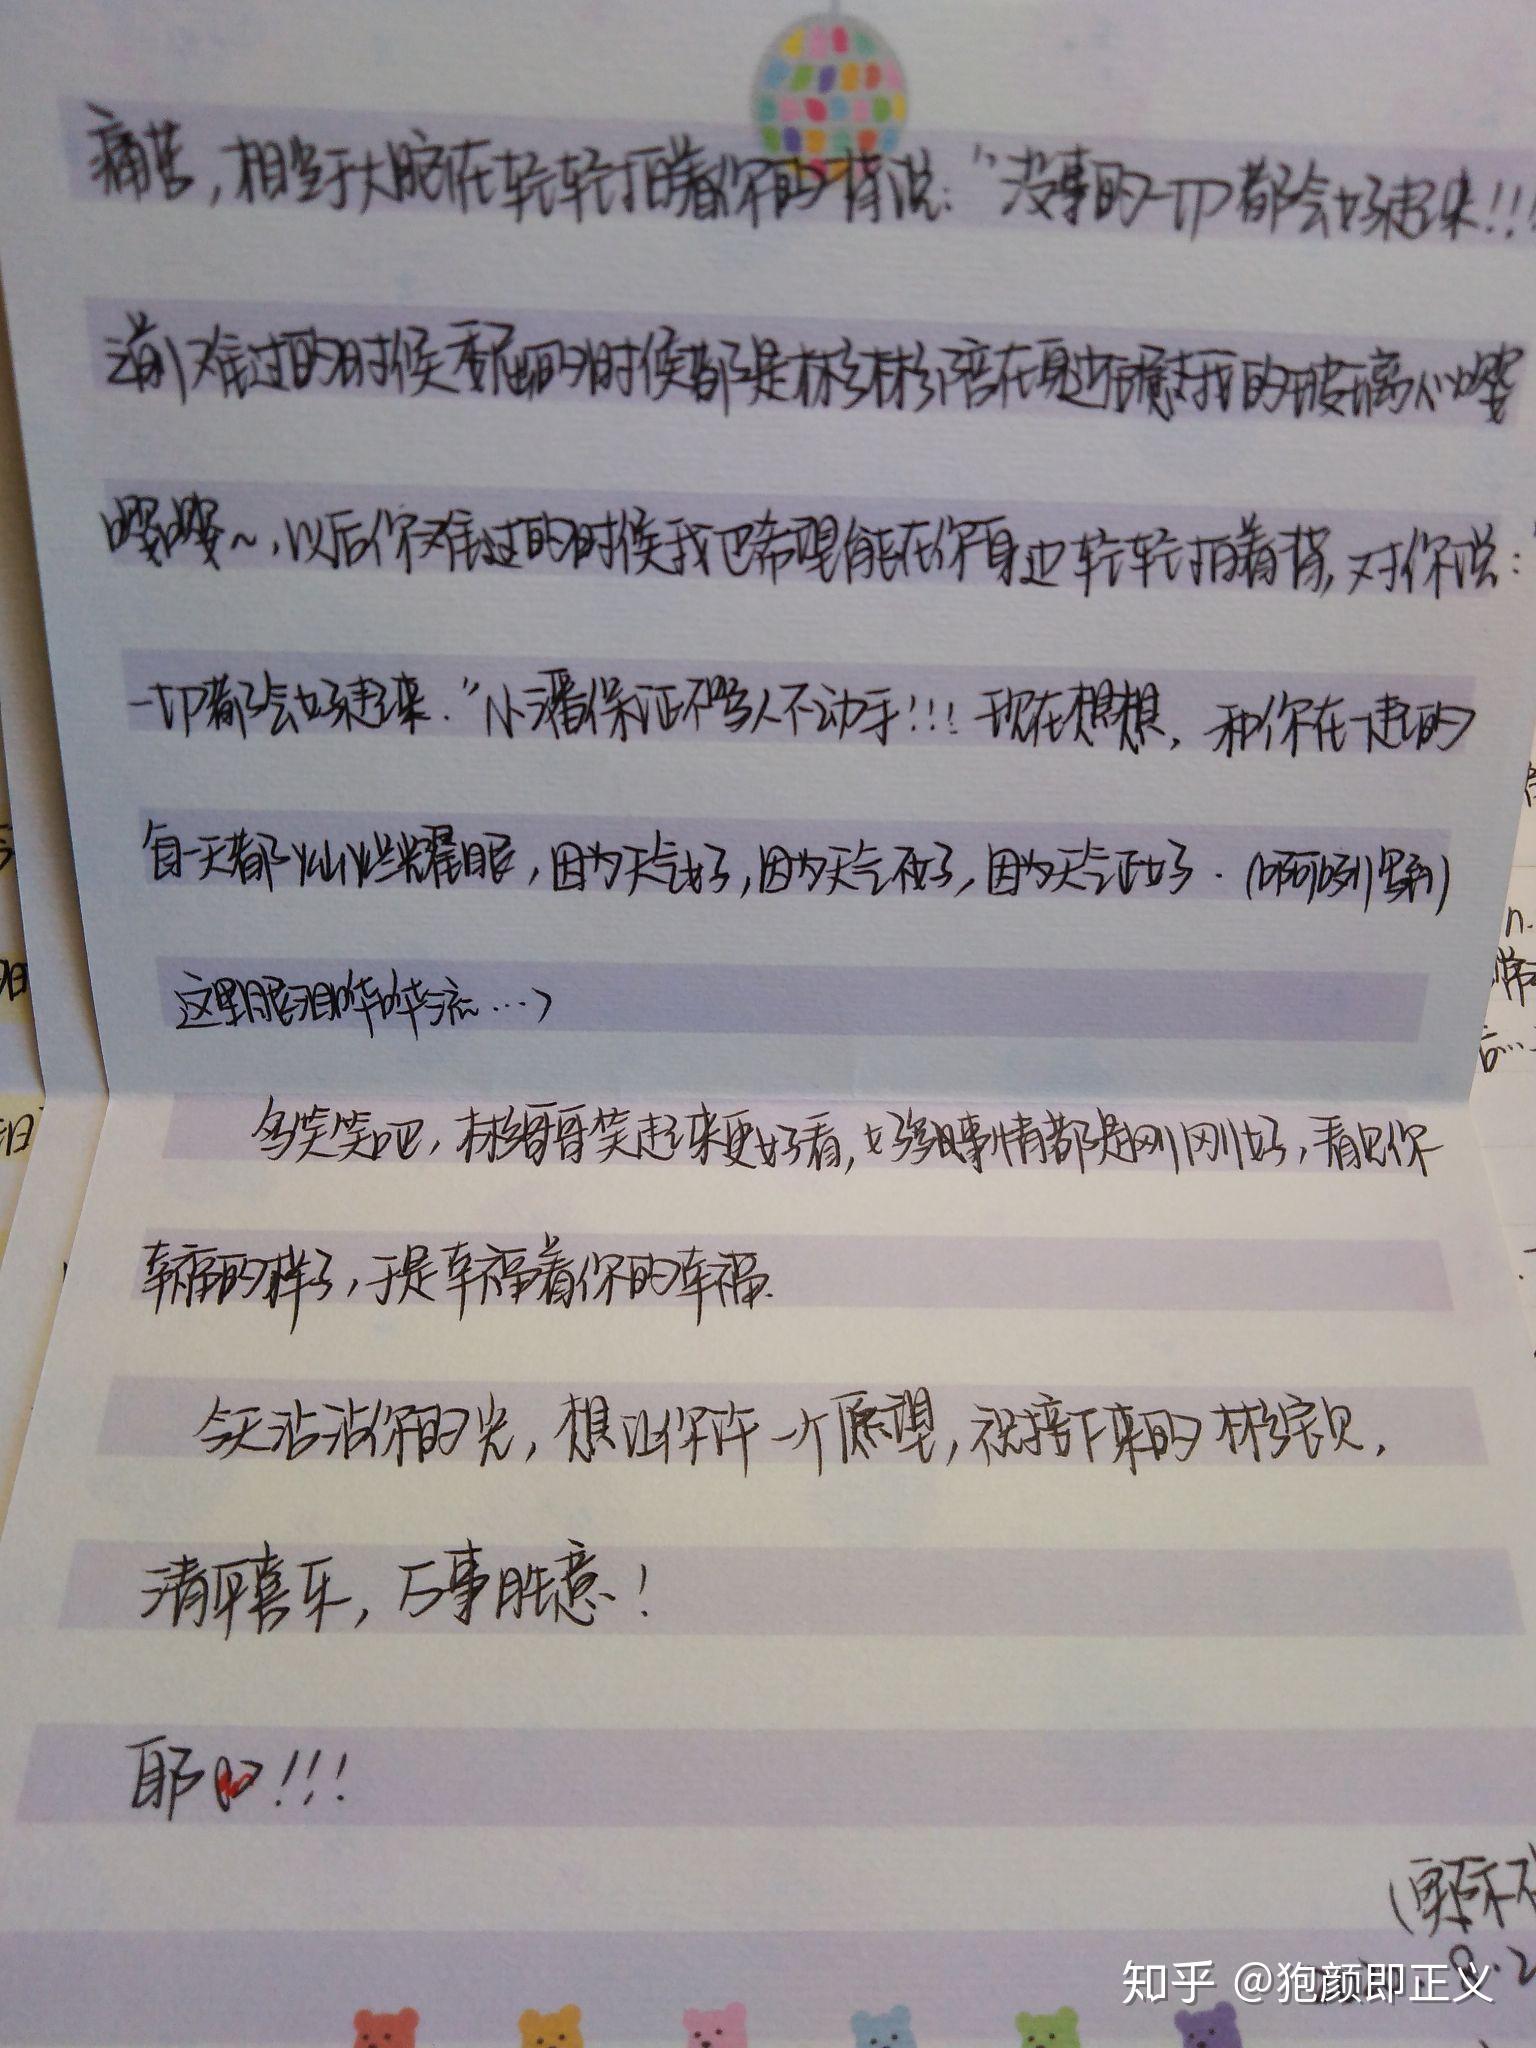 痛苦，相当于大脑在轻轻拍着你的背说：“没事的一切都会好起来!!!
难过的时候委屈的时候都是彬彬陪在身边安慰我的玻璃心嘤
嘤嘤~，以后你难过的时候我也希望能在你身边轻轻拍着背，对你说：“
一切都会好起来.”小潘保证不骂人不动手!!!现在想想，和你在一起的
每一天都灿烂耀眼，因为天气好，因为天气不好，因为天气正好.(啊到
这里眼泪哗哗流…)
多笑笑吧，彬哥哥笑起来更好看，好多事情都是刚刚好，看见你
幸福的样子，于是幸福着你的幸福.
今天沾沾你的光，想让你许一个愿望，祝接下来的彬宝贝，
清平喜乐，万事胜意!
耶!!!
知乎 @狍颜即正义